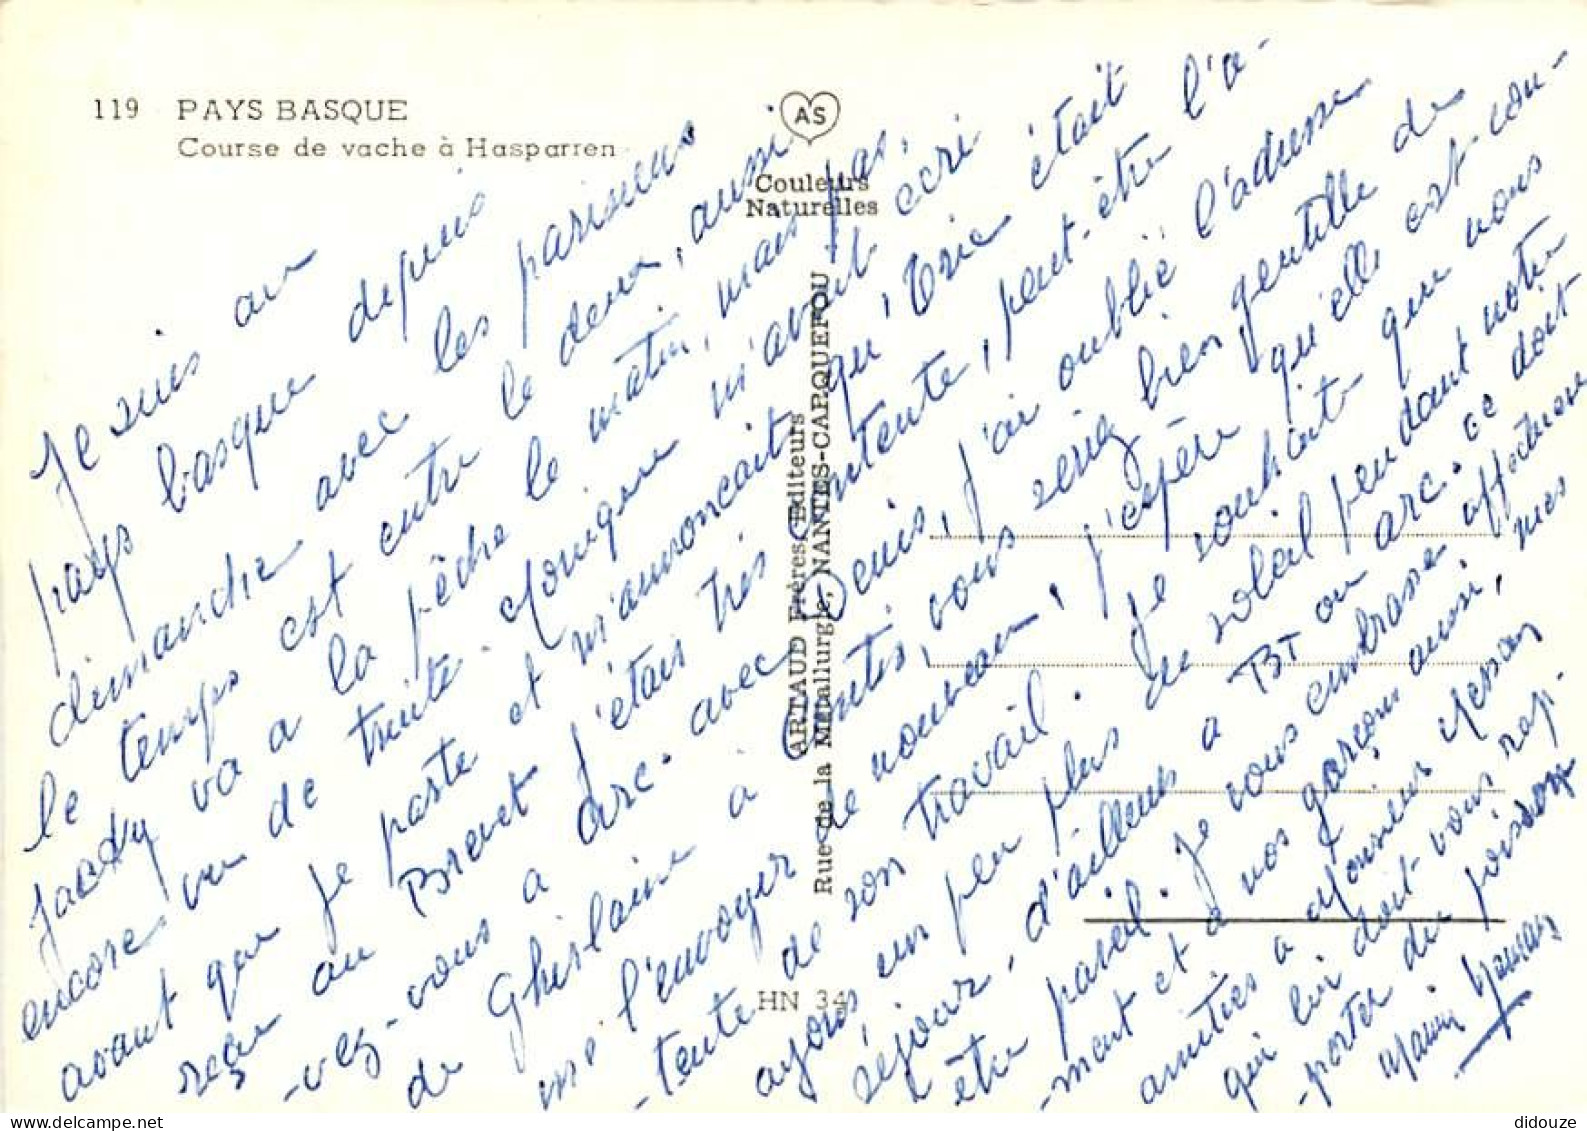 119 PAYS BASQUE
Course de vache à Hasparren
AS
Couleurs
Naturelles
ARTAUD Frères, Editeurs
Rue de la Métallurgie, NANTES-CARQUEFOU
HN 34
Je suis au
pays basque depuis
dimanche avec les parisiens
le temps est entre le deux, aussi
Jacky va a la pêche le matin, mais pas
encore vu de truite. Monique m'avait écri
avant que je parte et m'annonçait qu'Eric était
reçu au Brevet j'étais très contente, peut-être l'a-
-vez-vous a Arc. avec Denis, j'ai oublié l'adresse
de Ghislaine a Contis, vous seriez bien gentille de
me l'envoyer de nouveau, j'espère qu'elle est con-
-tente de son travail. Je souhaite que nous
ayons un peu plus de soleil pendant notre
séjour, d'ailleurs a BT ou arc. ce doit
être pareil. Je vous embrasse affectueuse
-ment et a vos garçons aussi, mes
amitiés a Monsieur
qui lui doit-vous rap-
-porter du poisson